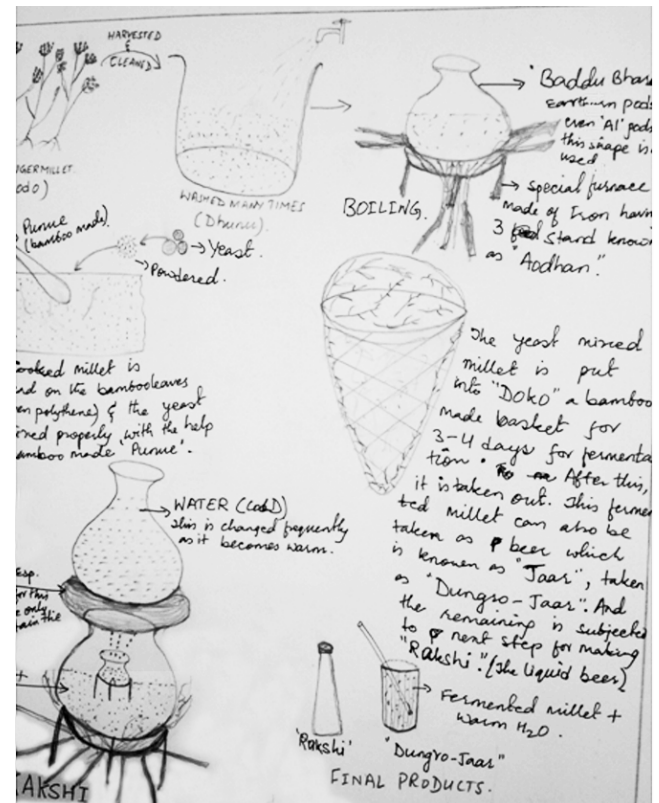 HARVESTED
&
CLEANED
NGERMILLET.
odo)
WASHED MANY TIMES
(Dhunu).
BOILING.
"Baddu Bhar
Earthern pods
even 'Al' pods
this shape is
used
special furnace
made of Iron havin
3 stand known
as "Aodhan".
Purue
(bamboo made)
Yeast.
Powdered.
ooked millet is
nd on the bambooleaves
en polythene) & the yeast
ixed properly with the help
amboo made 'Purue'.
The yeast mixed
millet is put
into "DOKO" a bamboo
made basket for
3-4 days for fermenta
tion. After this,
it is taken out. This fermen
ted millet can also be
taken as beer which
is known as "Jaar", taken
as "Dungro-Jaar". And
the remaining is subjected
to next step for making
"Rakshi". (The liquid beer)
WATER (CoLD)
This is changed frequently
as it becomes warm.
esp.
for this
e only
tain the
+
AKSHI
'Rakshi'
"Dungro-Jaar"
Fermented millet +
warm H2O.
FINAL PRODUCTS.